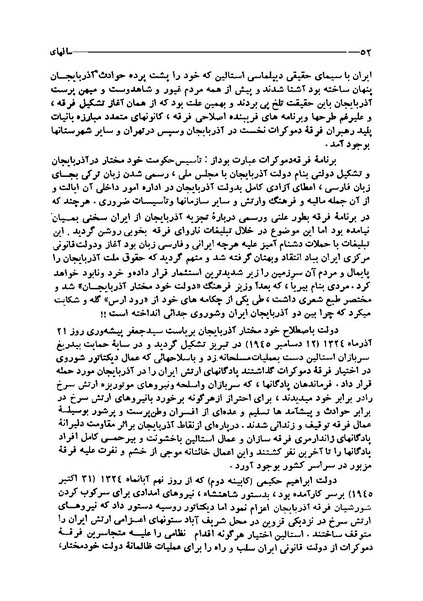 ۵۲ــــــــــــــــــــــــــــــــــــــــــــــــــــــــــ سالهای
ایران با سیمای حقیقی دیپلماسی استالین که خود را پشت پرده حوادث آذربایجان
پنهان ساخته بود آشنا شدند و پیش از همه مردم غیور و شاهدوست و میهن پرست
آذربایجان باین حقیقت تلخ پی بردند و بهمین علت بود که از همان آغاز تشکیل فرقه ،
و علیرغم طرحها وبرنامه های فریبنده اصلاحی فرقه ، کانونهای متعدد مبارزه بانیات
پلید رهبران فرقه دموکرات نخست در آذربایجان وسپس درتهران و سایر شهرستانها
بوجود آمد .
برنامهٔ فرقه‌دموکرات عبارت بوداز : تاسیس‌حکومت خود مختار درآذربایجان
و تشکیل دولتی بنام دولت آذربایجان با مجلس ملی ، رسمی شدن زبان ترکی بجای
زبان فارسی ، اعطای آزادی کامل بدولت آذربایجان در اداره امور داخلی آن ایالت و
از آن جمله مالیه و فرهنگ وارتش و سایر سازمانها وتاسیسات ضروری . هرچند که
در برنامهٔ فرقه بطور علنی ورسمی دربارهٔ تجزیه آذربایجان از ایران سخنی بمیان
نیامده بود اما این موضوع در خلال تبلیغات ناروای فرقه بخوبی روشن گردید . این
تبلیغات با حملات دشنام آمیز علیه هرچه ایرانی و فارسی زبان بود آغاز ودولت‌قانونی
مرکزی ایران بباد انتقاد وبهتان گرفته شد و متهم گردید که حقوق ملت آذربایجان را
پایمال و مردم آن سرزمین را زیر شدیدترین استثمار قرار داده‌و خرد ونابود خواهد
کرد . مردی بنام بیریا ، که بعداً وزیر فرهنگ «دولت خود مختار آذربایجان» شد و
مختصر طبع شعری داشت ، طی یکی از چکامه های خود از «رود ارس» گله و شکایت
میکرد که چرا بین دو آذربایجان ایران وشوروی جدائی انداخته است !!
دولت باصطلاح خود مختار آذربایجان بریاست سیدجعفر پیشه‌وری روز ۲۱
آذرماه ۱۳۲۴ (۱۲ دسامبر ۱۹۴۵) در تبریز تشکیل گردید و در سایهٔ حمایت بیدریغ
سربازان استالین دست بعملیات‌مسلحانه‌زد وباسلاحهائی که عمال دیکتاتور شوروی
در اختیار فرقهٔ دموکرات گذاشتند پادگانهای ارتش ایران را در آذربایجان مورد حمله
قرار داد . فرماندهان پادگانها ، که سربازان واسلحه ونیروهای موتوریزه ارتش سرخ
رادر برابر خود میدیدند ، برای احتراز ازهرگونه برخورد بانیروهای ارتش سرخ در
برابر حوادث و پیشآمد ها تسلیم و عده‌ای از افسران وطن‌پرست و پرشور بوسیلهٔ
عمال فرقه توقیف و زندانی شدند . درپاره‌ای ازنقاط آذربایجان براثر مقاومت دلیرانهٔ
پادگانهای ژاندارمری فرقه سازان و عمال استالین باخشونت و بیرحمی کامل افراد
پادگانها را تا آخرین نفر کشتند واین اعمال خائنانه موجی از خشم و نفرت علیه فرقهٔ
مزبور در سراسر کشور بوجود آورد .
دولت ابراهیم حکیمی (کابینه دوم) که از روز نهم آبانماه ۱۳۲۴ (۳۱ اکتبر
۱۹۴۵) برسر کارآمده بود ، بدستور شاهنشاه ، نیروهای امدادی برای سرکوب کردن
شورشیان فرقه آذربایجان اعزام نمود اما دیکتاتور روسیه دستور داد که نیروهای
ارتش سرخ در نزدیکی قزوین در محل شریف آباد ستونهای اعزامی ارتش ایران را
متوقف ساختند . استالین اختیار هرگونه اقدام نظامی را علیه متجاسرین فرقهٔ
دموکرات از دولت قانونی ایران سلب و راه را برای عملیات ظالمانهٔ دولت خودمختار،